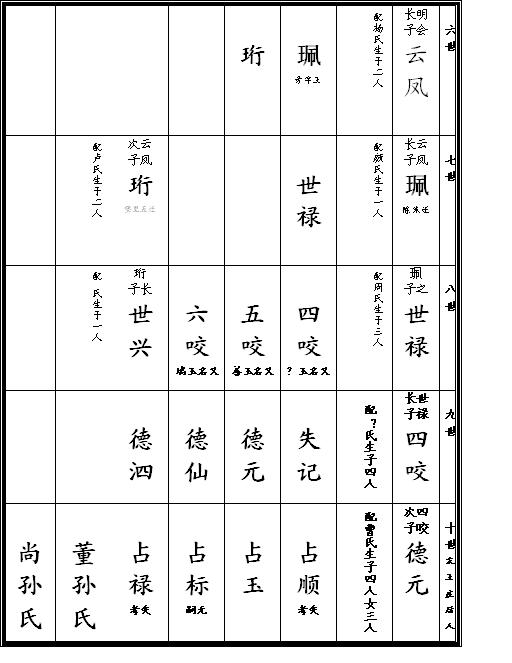 六世
明会
长子
云凤
配杨氏生子二人
珮
珩
七世
云凤
长子
珮
迁朱陈
配颜氏生子一人
世禄
云凤
次子
珩
迁五里堡
配卢氏生子二人
八世
珮之
子
世禄
配周氏生子三人
四咬
又名玉？
五咬
又名玉善
六咬
又名玉瑞
珩长
子
世兴
配 氏生子一人
九世
世禄
长子
四咬
配？氏生子四人
失记
德元
德仙
德泗
十世
四咬
次子
德元
配曹氏生子四人女三人
占顺
失考
占玉
占标
无嗣
占禄
失考
董孙氏
尚孙氏